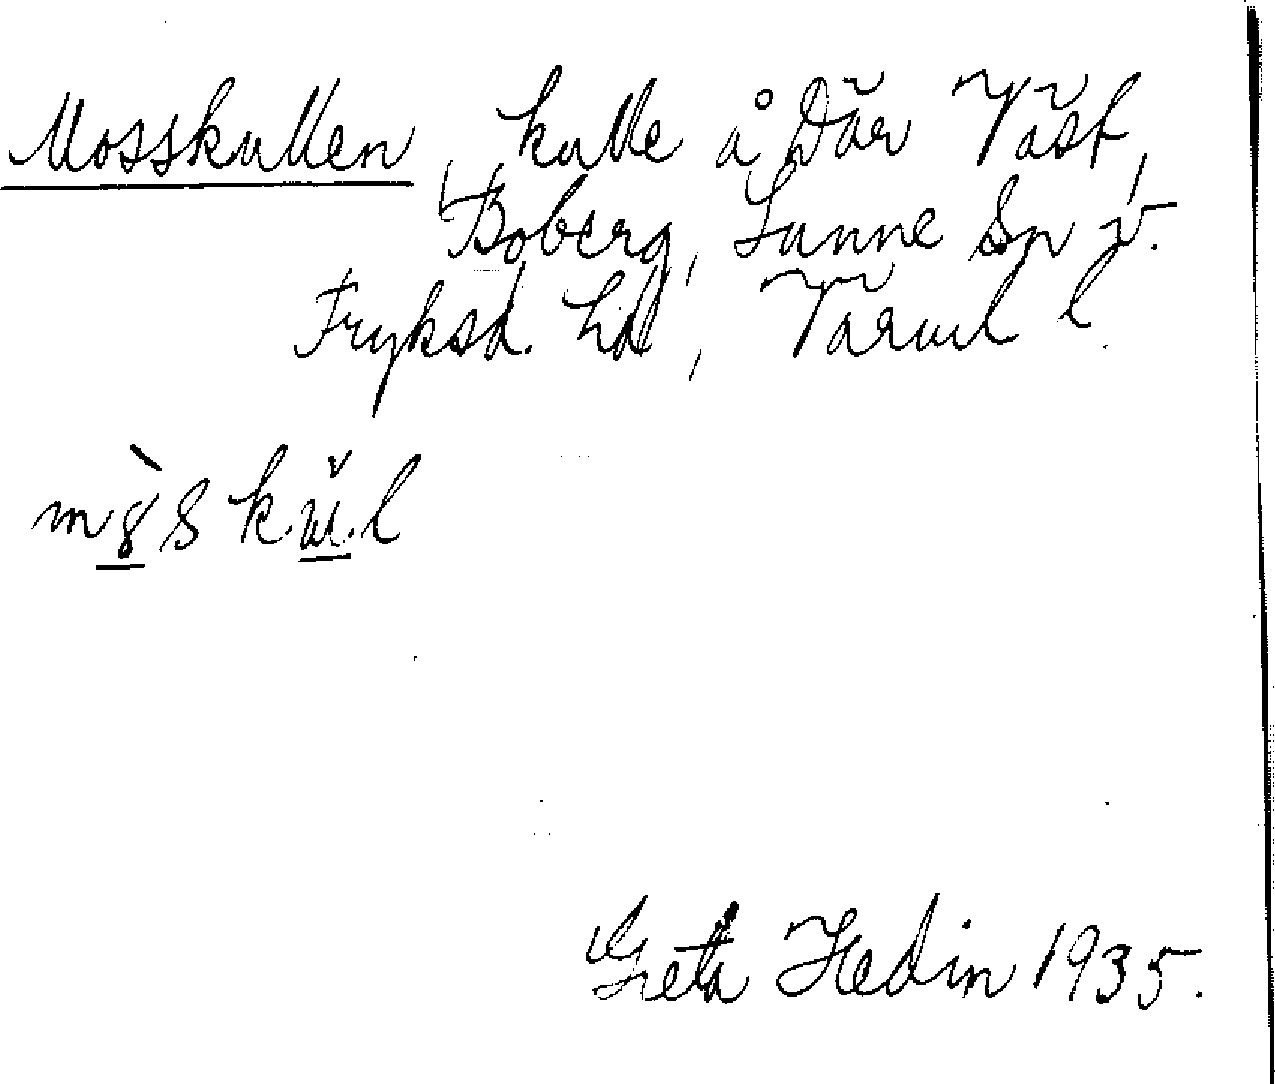 Mosskullen, kulle å Där Väst,
Boberg, Sunne Sn v.
Fryksd. hd, Värml l.
m8̀s kŭl
Greta Hedin 1935.